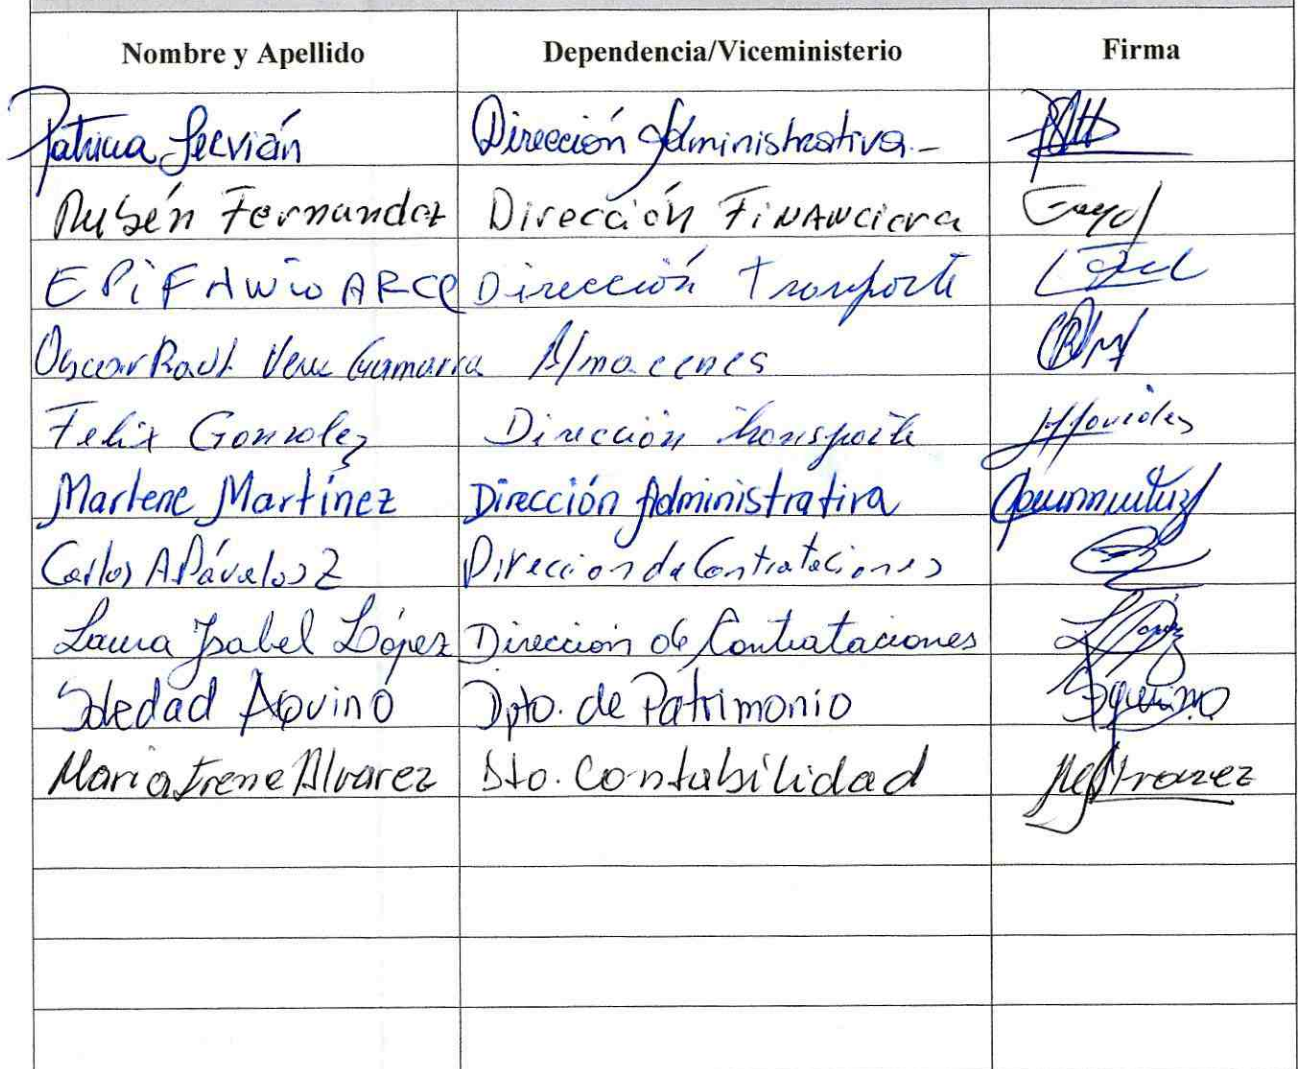 Nombre y Apellido Dependencia/Viceministerio Firma
Patricia Servián Dirección Administrativa -
Rubén Fernandez Dirección FiNANciera
EPiFANio ARCE Dirección Transporte
Oscar Raúl Vera Gamarra Almacenes
Felix Gonzalez Dirección Transporte
Marlene Martínez Dirección Administrativa
Carlos A Dávalos Z Direccion de Contrataciones
Laura Isabel López Dirección de Contrataciones López
Soledad Aquino Dpto. de Patrimonio SAquino
Maria Irene Alvarez Dto. Contabilidad